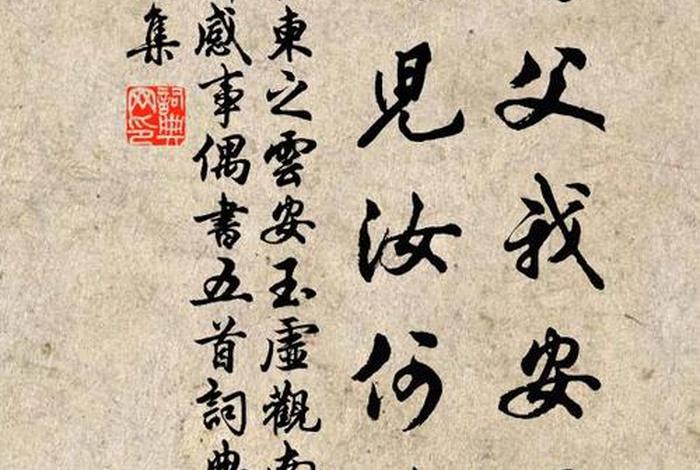 父我安
児汝何
東之雲安玉虛觀南
感事偶書五首詞典
集
詞典网印